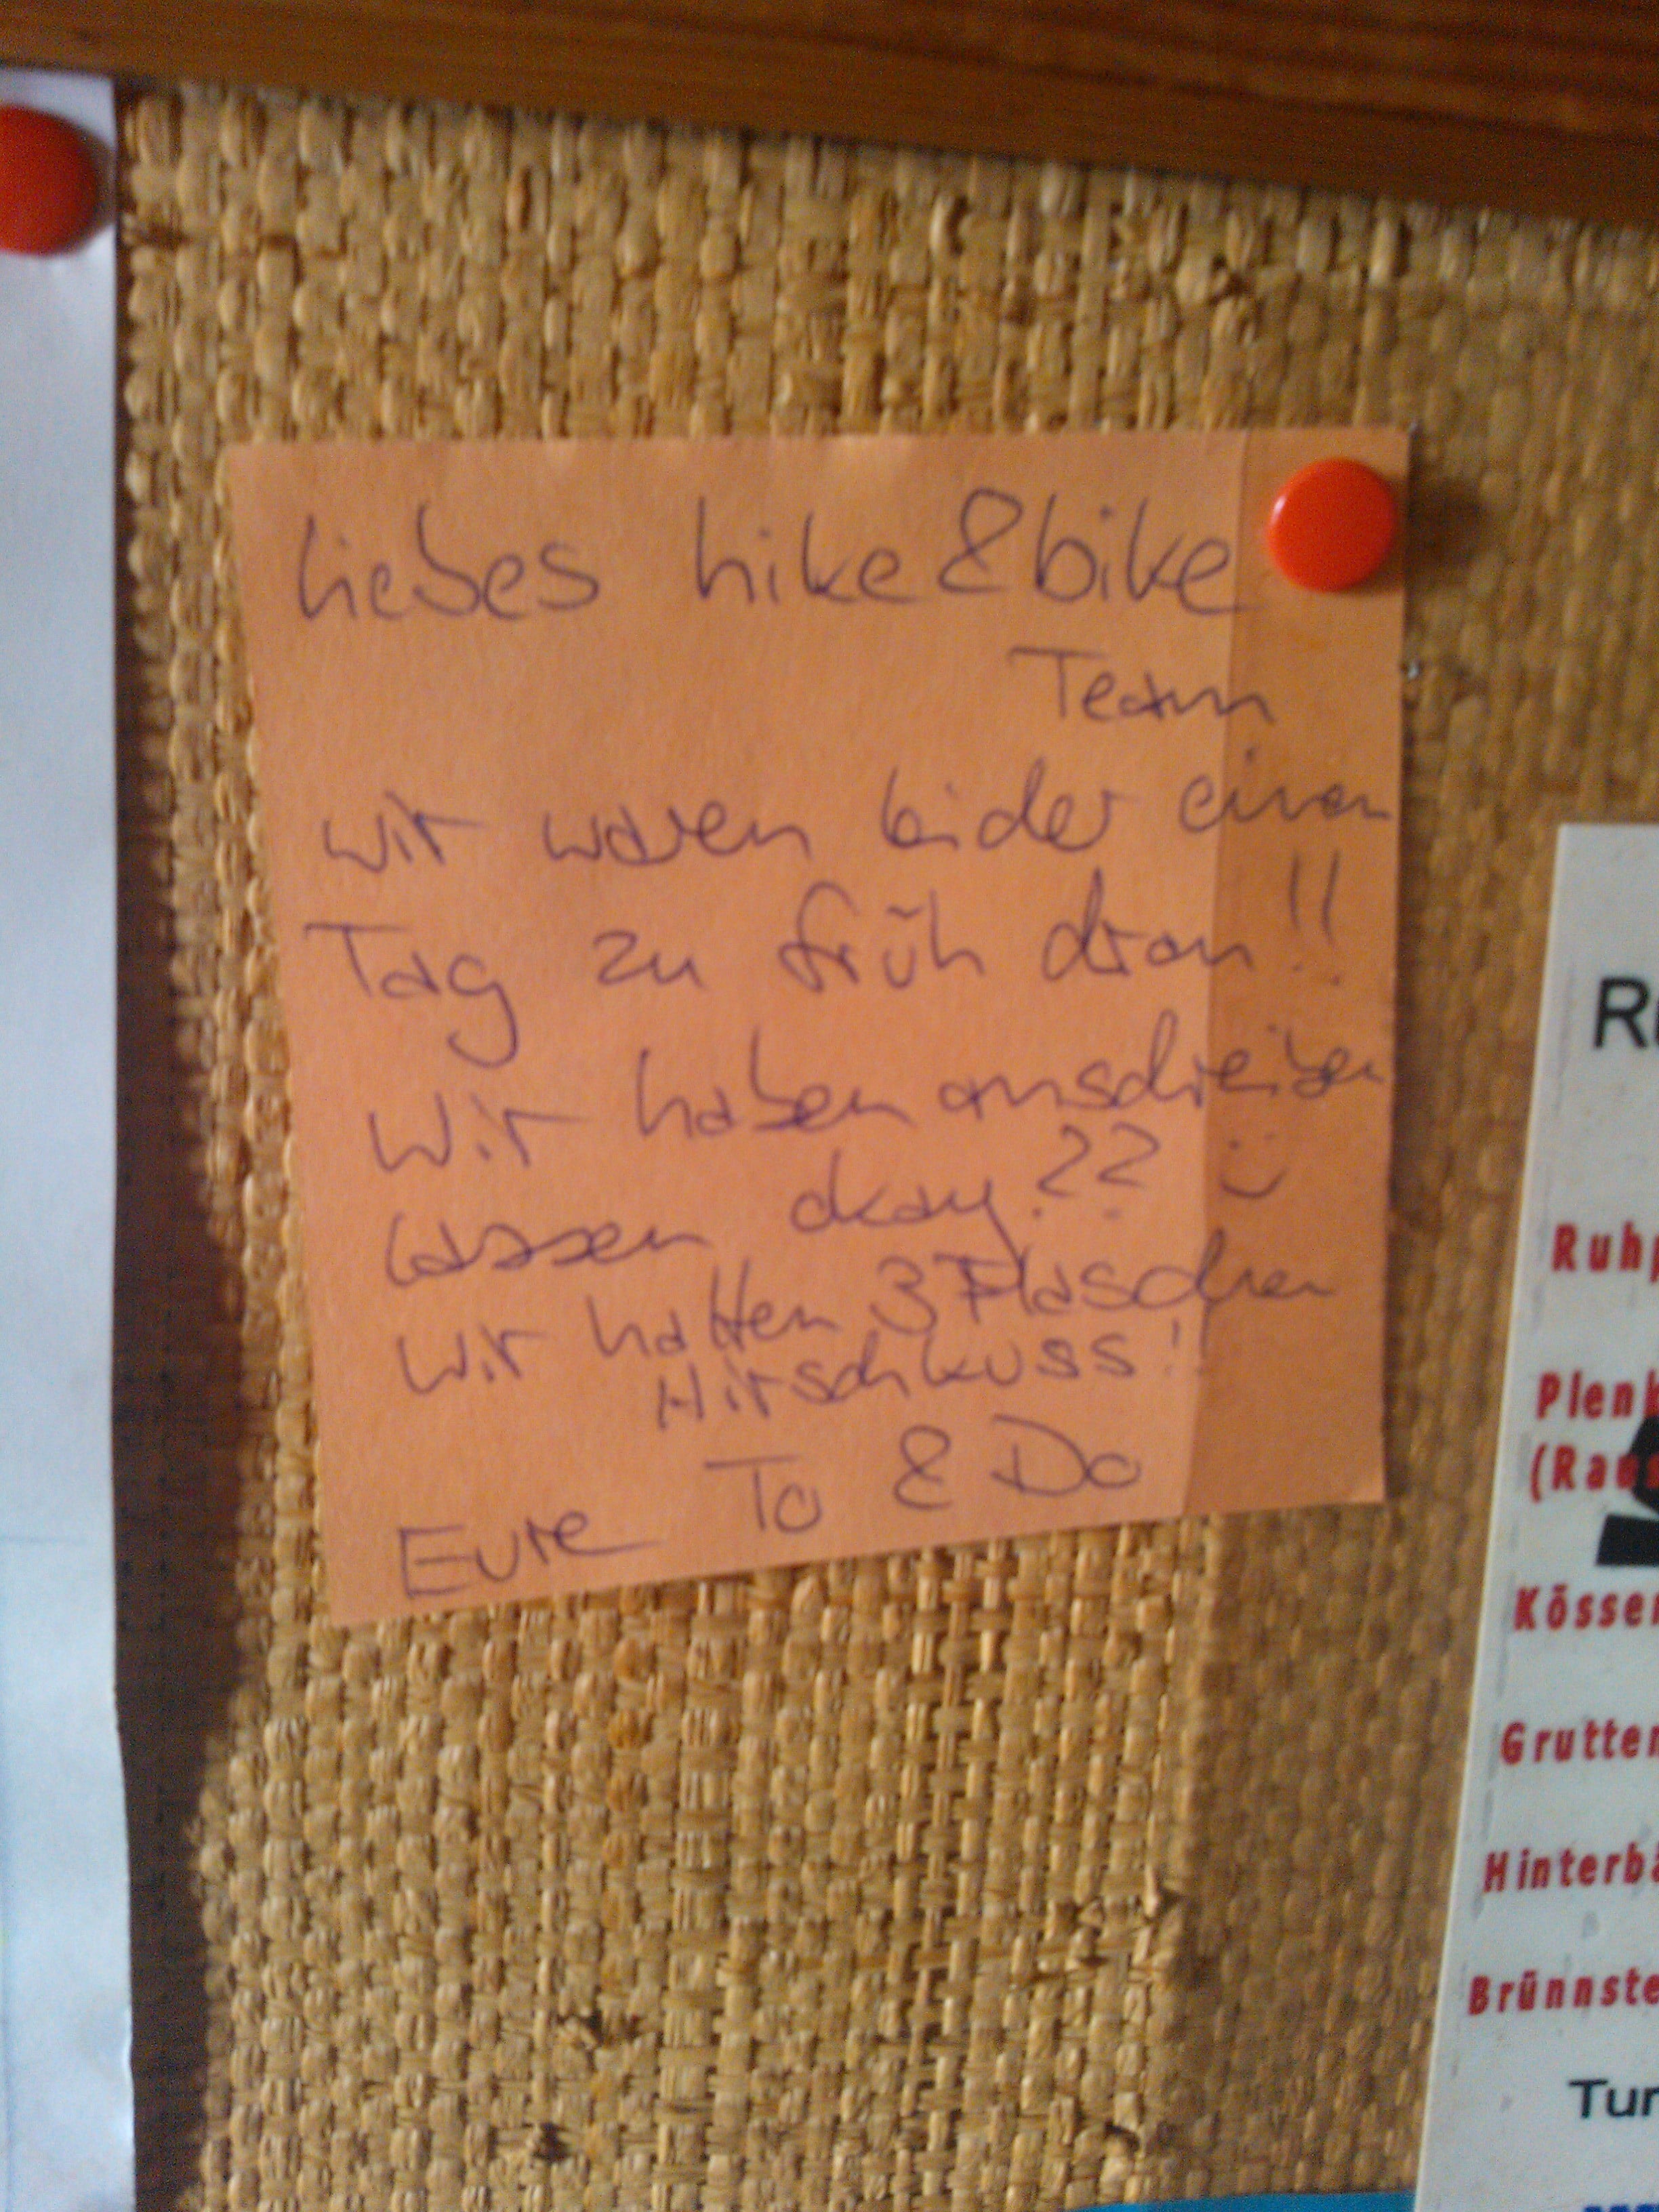 Liebes hike&bike
Team
wir waren leider einen
Tag zu früh dran!!
Wir haben anschreiben
lassen okay?? :)
Wir hatten 3 Flaschen
Hirschkuss!
Eure To & Do
Ru
Ruhp
Plenk
(Rau
Kössen
Grutten
Hinterbä
Brünnste
Tur